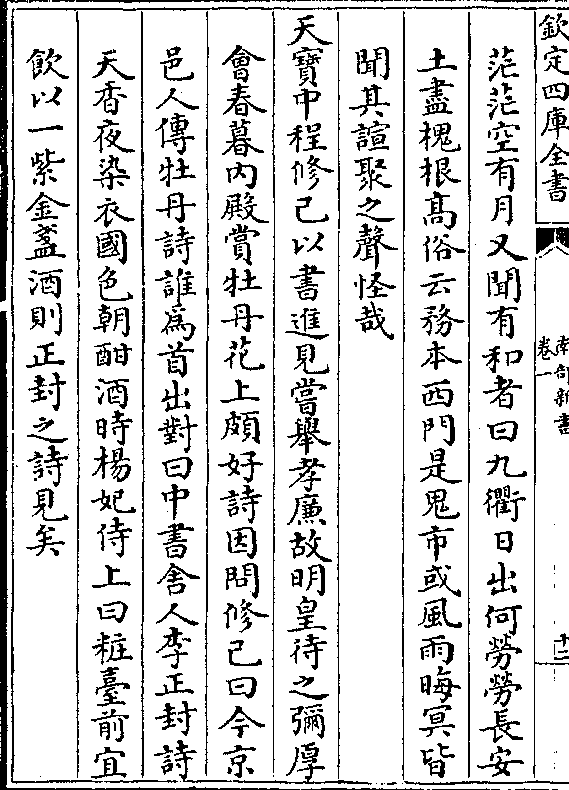 欽定四庫全書
南部新書
卷一
十二
茫茫空有月又聞有和者曰九衢日出何勞勞長安
土盡槐根髙俗云務本西門是鬼市或風雨晦冥皆
聞其諠聚之聲怪哉
天寳中程修己以書進見嘗舉孝廉故明皇待之彌厚
會春暮内殿賞牡丹花上頗好詩因問修己曰今京
邑人傳牡丹詩誰為首出對曰中書舍人李正封詩
天香夜染衣國色朝酣酒時楊妃侍上曰粧臺前宜
飲以一紫金盞酒則正封之詩見矣